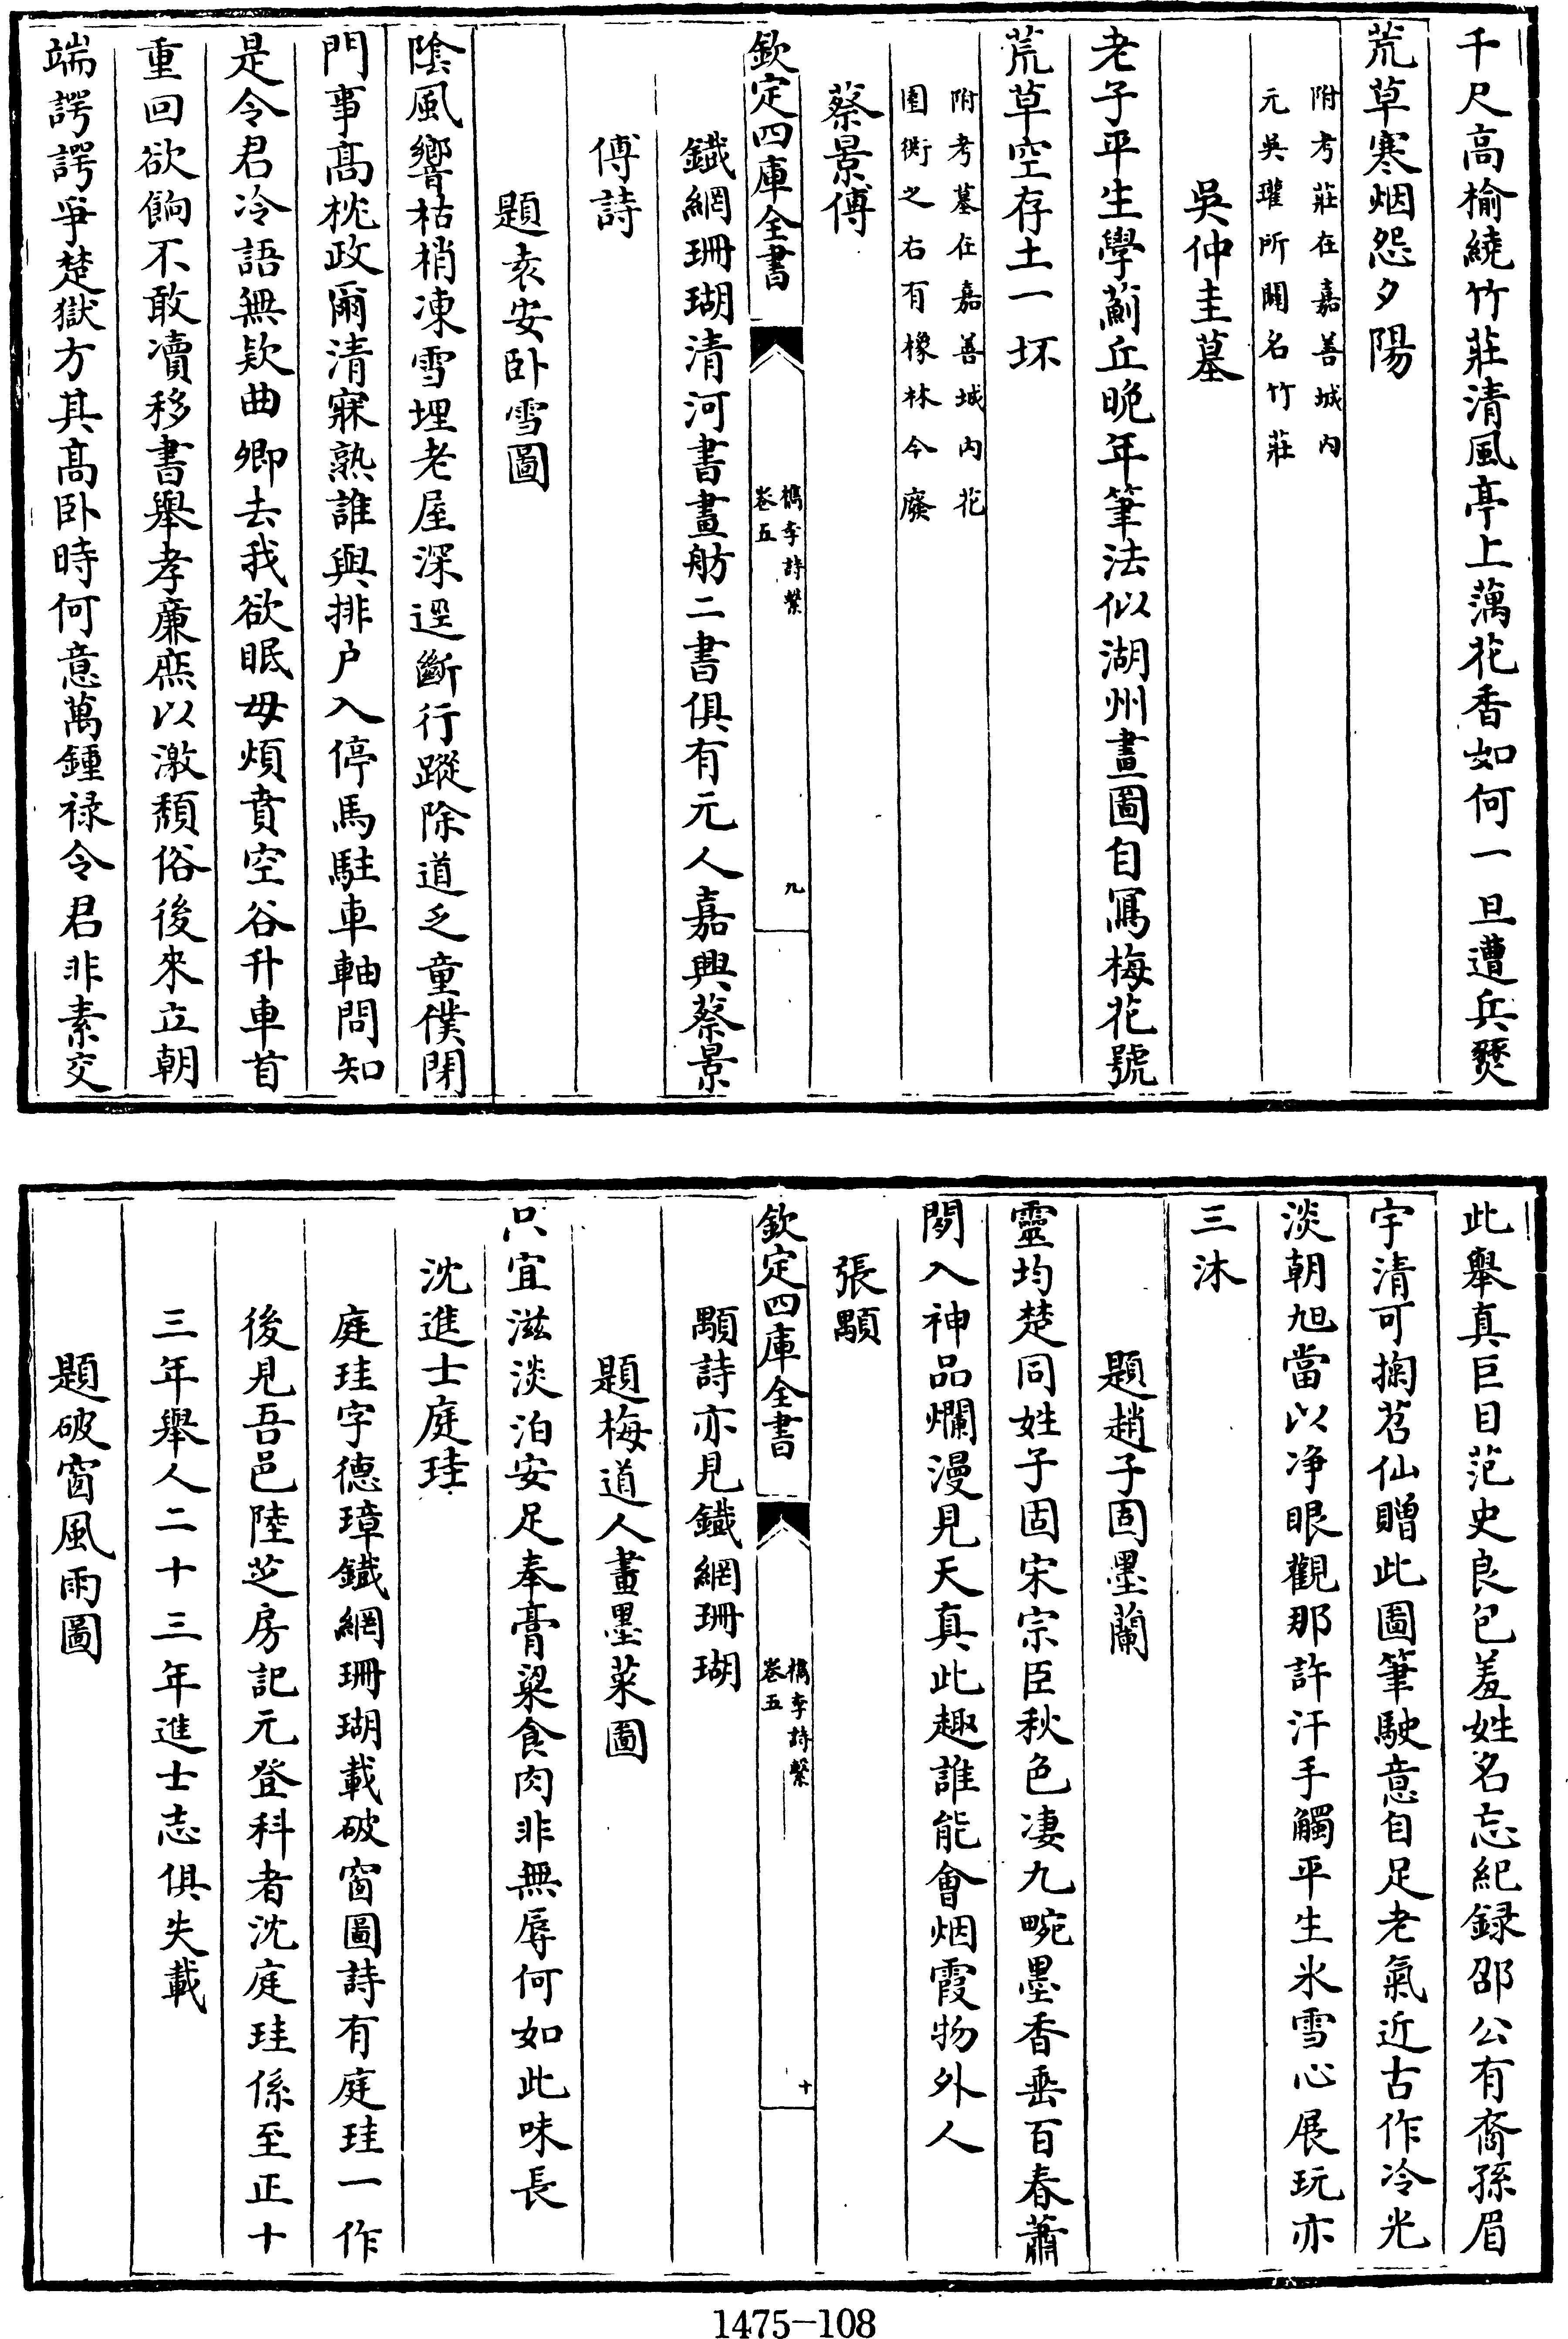 千尺高榆繞竹莊清風亭上藕花香如何一旦遭兵燹
荒草寒烟怨夕陽
附考莊在嘉善城內
元吳瓘所闢名竹莊
吳仲圭墓
老子平生學薊丘晚年筆法似湖州畫圖自寫梅花號
荒草空存土一坏
附考墓在嘉善城內花
園衖之右有橡林今廢
蔡景傅
欽定四庫全書
檇李詩繫
卷五
九
鐵網珊瑚清河書畫舫二書俱有元人嘉興蔡景
傅詩
題袁安卧雪圖
陰風響枯梢凍雪埋老屋深逕斷行蹤除道乏童僕閉
門事高枕政爾清寐熟誰與排户入停馬駐車軸問知
是令君冷語無欵曲卿去我欲眠毋煩賁空谷升車首
重回欲餉不敢凟移書舉孝廉庶以激頽俗後來立朝
端諤諤爭楚獄方其高卧時何意萬鍾禄令君非素交
此舉真巨目范史良已羞姓名忘紀録邵公有裔孫眉
宇清可掬茗仙贈此圖筆駛意自足老氣近古作冷光
淡朝旭當以净眼觀那許汗手觸平生氷雪心展玩亦
三沐
題趙子固墨蘭
靈均楚同姓子固宋宗臣秋色凄九畹墨香垂百春蕭
閒入神品爛漫見天真此趣誰能會烟霞物外人
張顒
欽定四庫全書
檇李詩繫
卷五
十
顒詩亦見鐵網珊瑚
題梅道人畫墨菜圖
只宜滋淡泊安足奉膏粱食肉非無辱何如此味長
沈進士庭珪
庭珪字德璋鐵網珊瑚載破窗圖詩有庭珪一作
後見吾邑陸芝房記元登科者沈庭珪係至正十
三年舉人二十三年進士志俱失載
題破窗風雨圖
1475-108